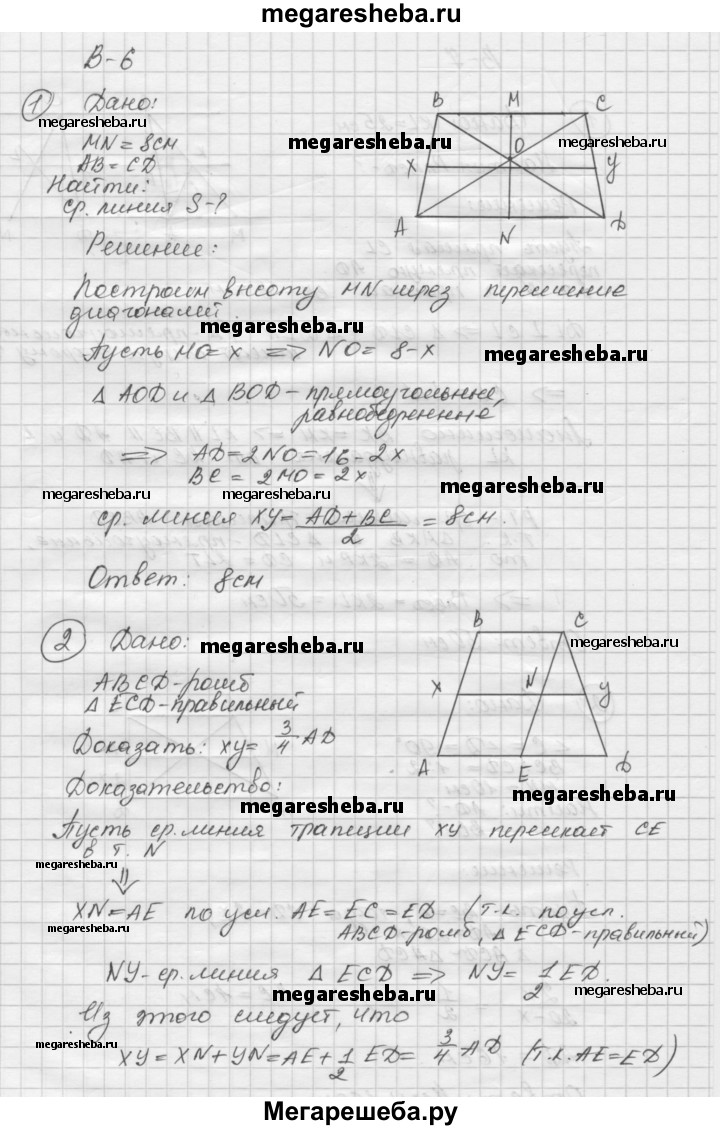 megaresheba.ru
В-6
1 Дано:
B M C
megaresheba.ru
MN = 8см
megaresheba.ru
O
megaresheba.ru
AB = CD
X У
Найти:
megaresheba.ru
ср. линия S-?
A N D
Решение:
Построим высоту MN через пересечение
диагоналей.
megaresheba.ru
Пусть MO = x => NO = 8-x
megaresheba.ru
Δ AOD и Δ BOD - прямоугольные,
равнобедренные
=> AD = 2NO = 16 - 2x
BC = 2MO = 2x
megaresheba.ru
megaresheba.ru
megaresheba.ru
ср. линия XY = AD+BC/2 = 8см.
Ответ: 8см
B C
2 Дано:
megaresheba.ru
megaresheba.ru
ABCD-ромб
X N У
Δ ECD-правильный
Доказать: xy = 3/4 AD
A E D
Доказательство:
megaresheba.ru
megaresheba.ru
Пусть ср. линия трапеции XY пересекает CE
в т. N
megaresheba.ru
megaresheba.ru
XN = AE по усл. AE = EC = ED (т.к. по усл.
ABCD-ромб, Δ ECD-правильный)
NY-ср. линия Δ ECD => NY = 1/2 ED.
megaresheba.ru
megaresheba.ru
Из этого следует, что
megaresheba.ru
XY = XN + YN = AE + 1/2 ED = 3/4 AD (т.к. AE = ED)
Мегарешеба.ру